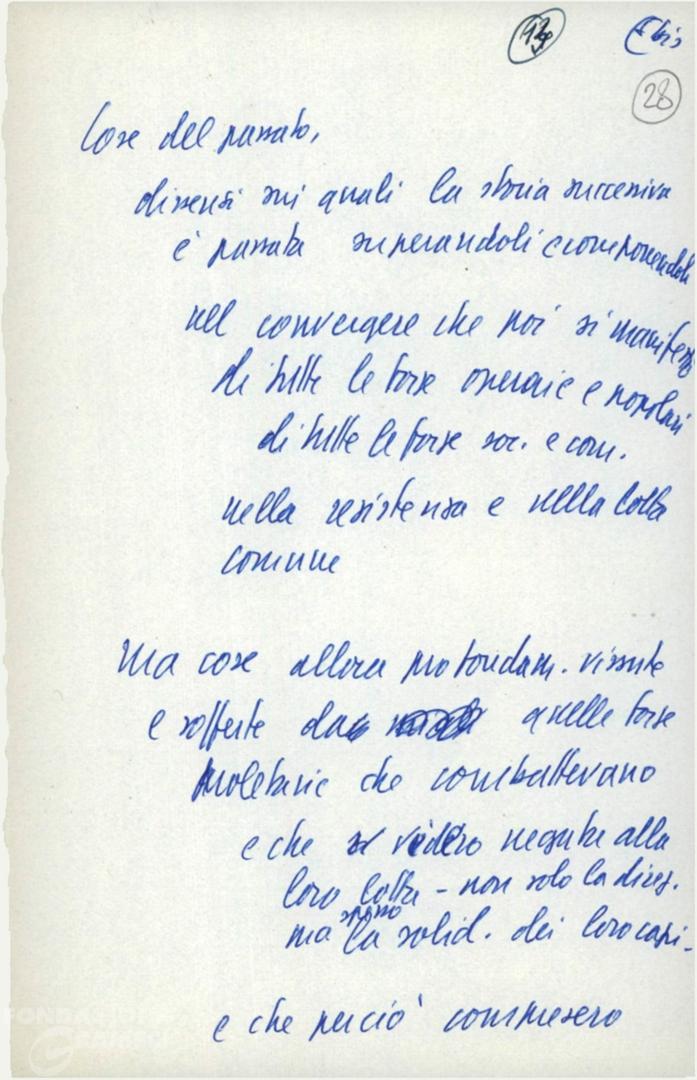 28
Cose del passato,
dissensi sui quali la storia successiva
è passata superandoli e componendoli
nel convergere che poi si manifestò
di tutte le forze operaie e popolari
di tutte le forze soc. e com.
nella resistenza e nella lotta
comune
Ma cose allora profondam. vissute
e sofferte da quelle forze
proletarie che combattevano
e che si videro negate alla
loro lotta - non solo la direz.
spesso
ma la solid. dei loro capi -
e che perciò commisero
FONDAZIONE